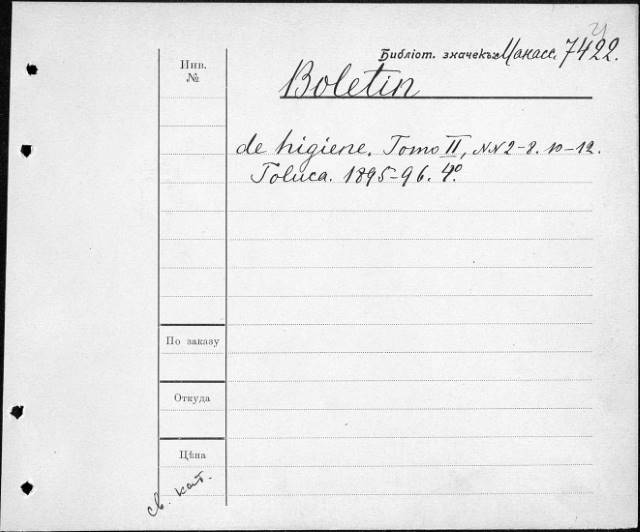 Библіот. значекъ: Манасс. 7422.
Инв.
№
Boletin
de higiene. Tomo II, NN 2-8. 10-12.
Toluca. 1895-96. 4º.
По заказу
Откуда
Цѣна
св. кат.